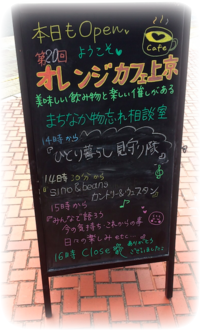 本日もOpen
Cafe
第20回 ようこそ
オレンジカフェ上京
美味しい飲み物と楽しい催しがある
まちなか物忘れ相談室
14時から
『ひとり暮らし見守り隊』
14時20分から
sino&beans
カントリー&ウエスタン
15時から
『みんなで語ろう
今の気持ち これからの事
日々の楽しみ etc
16時 Close
ありがとう
ございました